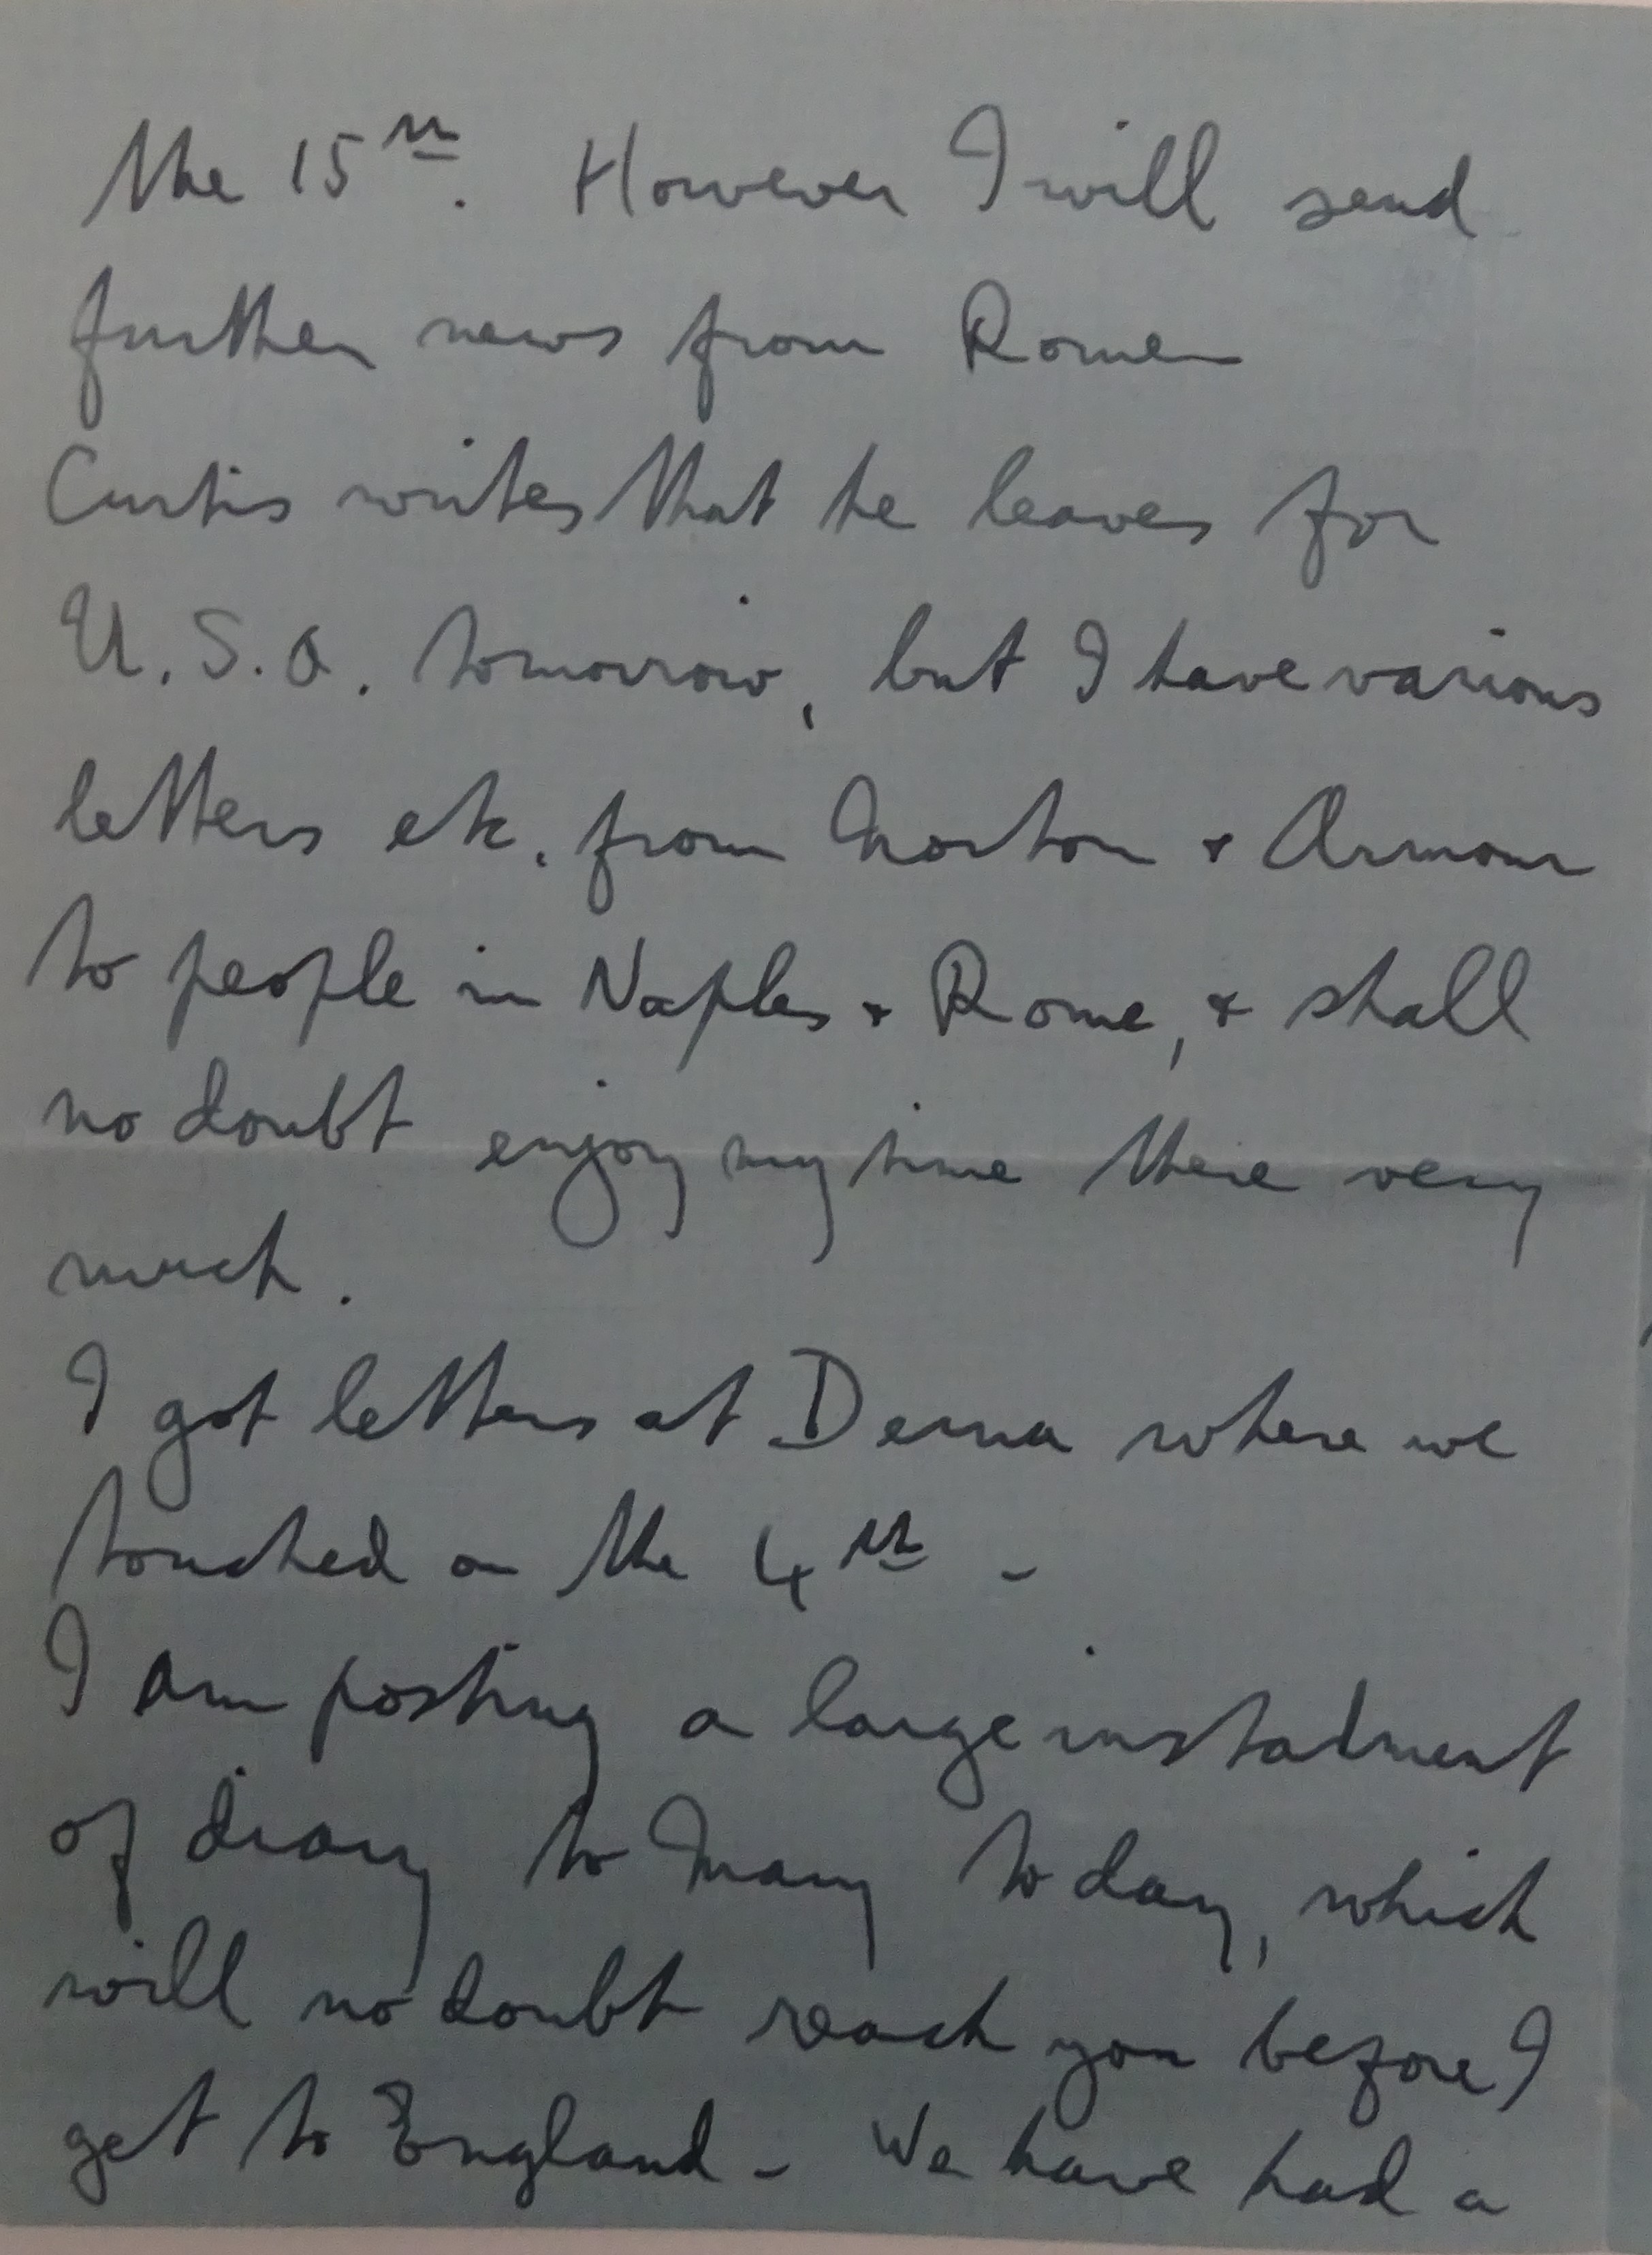 the 15th. However I will send
further news from Rome
Curtis writes that he leaves for
U.S.A. tomorrow, but I have various
letters etc. from Norton & Armour
to people in Naples & Rome, & shall
no doubt enjoy my time there very
much.
I got letters at Derna where we
touched on the 4th -
I am posting a large instalment
of diary to Mary today, which
will no doubt reach you before I
get to England - We have had a